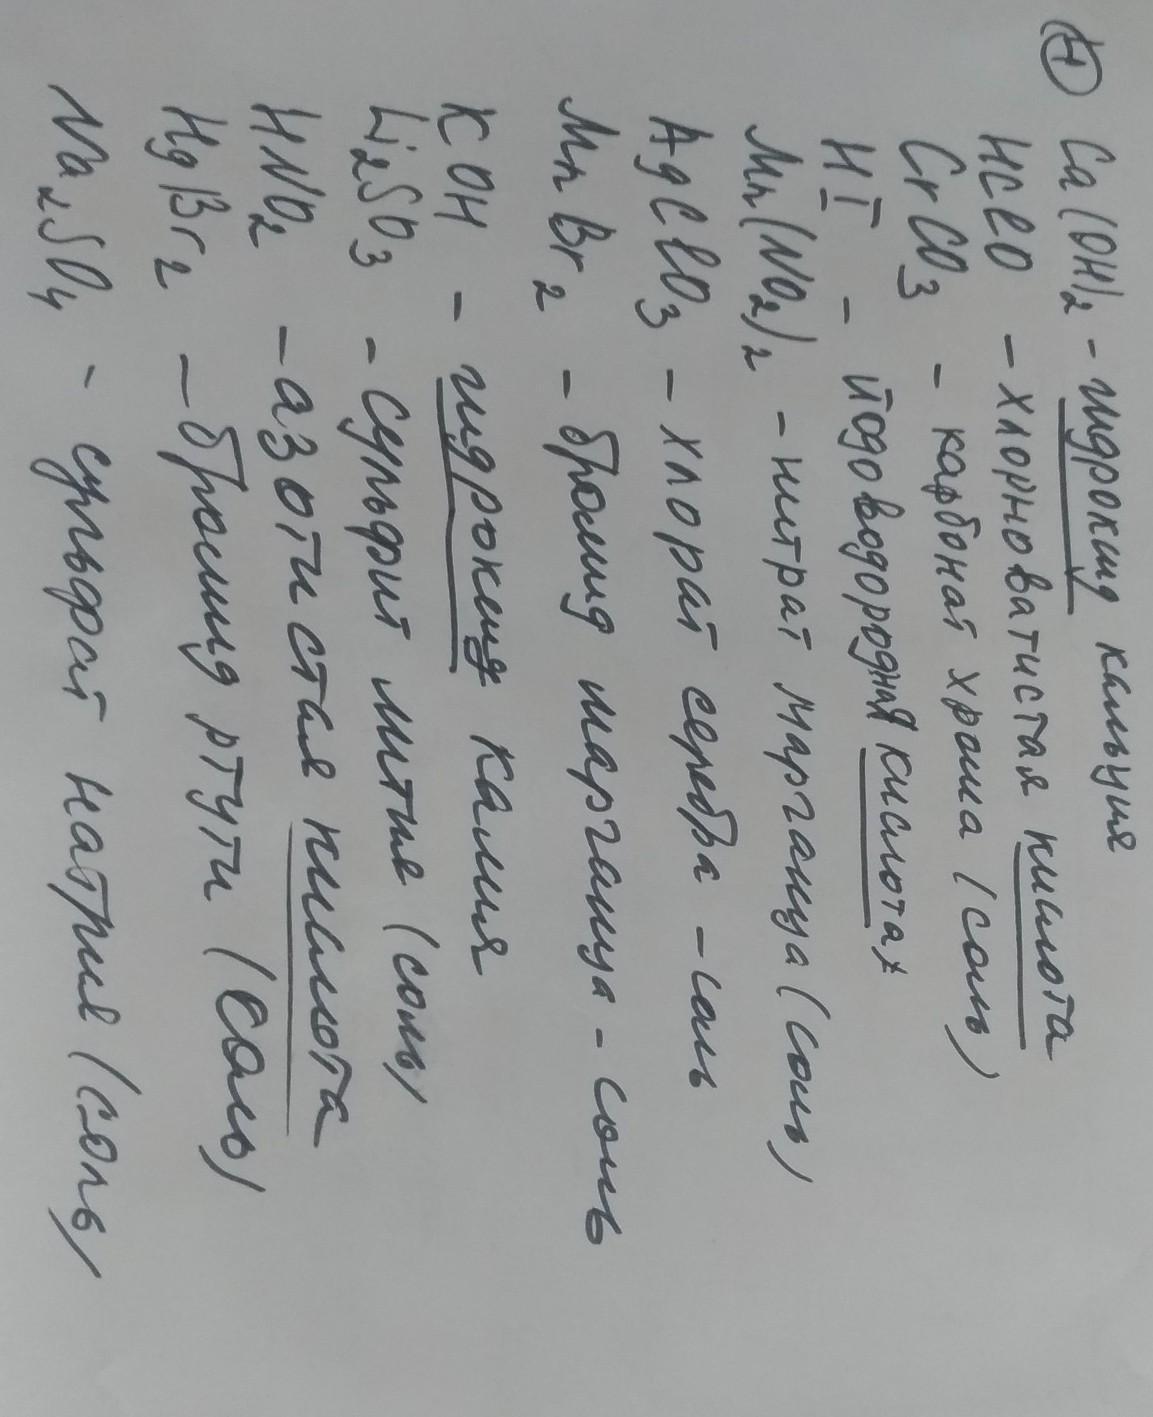 ④ Ca(OH)₂ - гидроксид кальция
HClO - хлорноватистая кислота
CrCO₃ - карбонат хрома (соль)
HI - йодоводородная кислота
Mn(NO₂)₂ - нитрат марганца (соль)
AgClO₃ - хлорат серебра - соль
MnBr₂ - бромид марганца - соль
KOH - гидроксид калия
Li₂SO₃ - сульфит лития (соль)
HNO₂ - азотистая кислота
HgBr₂ - бромид ртути (соль)
Na₂SO₄ - сульфат натрия (соль)